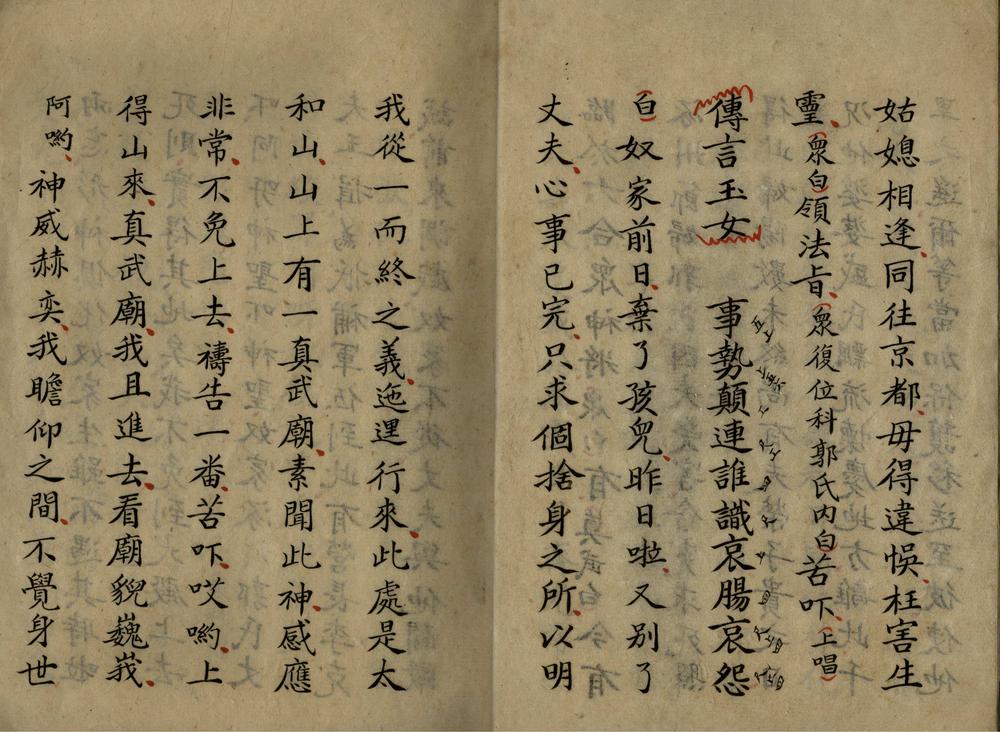 姑媳相逢同往京都毋得違悞枉害生
靈衆白領法旨衆復位科郭氏內白苦吓上唱
傳言玉女 事勢顛連誰識哀腸哀怨
白奴家前日棄了孩兒昨日啦又別了
丈夫心事已完只求個捨身之所以明
我從一而終之義迤逞行來此處是太
和山山上有一真武廟素聞此神感應
非常不免上去禱告一番苦吓哎喲上
得山來真武廟我且進去看廟貌巍峩
阿喲神威赫奕我瞻仰之間不覺身世